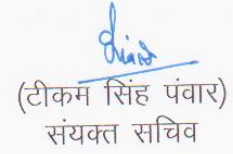 (टीकम सिंह पंवार)
संयक्त सचिव